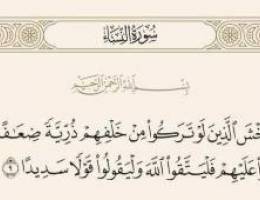 سُورَةُ النِّسَاءِ
بِسْمِ اللَّهِ الرَّحْمَٰنِ الرَّحِيمِ
خْشَ الَّذِينَ لَوْ تَرَكُوا مِنْ خَلْفِهِمْ ذُرِّيَّةً ضِعَافً
وا عَلَيْهِمْ فَلْيَتَّقُوا اللَّهَ وَلْيَقُولُوا قَوْلًا سَدِيدًا ٩